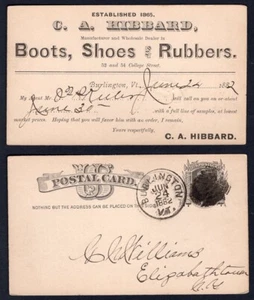 ESTABLISHED 1865.
C. A. HIBBARD,
Manufacturer and Wholesale Dealer in
Boots, Shoes and Rubbers.
52 and 54 College Street
Burlington, Vt., June 24 1882
My Agent Mr. will call on you on or about
June 30 with a full line of samples, at lowest
market prices. Hoping that you will favor him with a
Yours respectfully,
C. A. HIBBARD.
US
POSTAL CARD.
NOTHING BUT THE ADDRESS CAN BE PLACED ON THIS SIDE.
BURLINGTON
JUN
24
1882
VT.
C C Williams
Elizabethtown